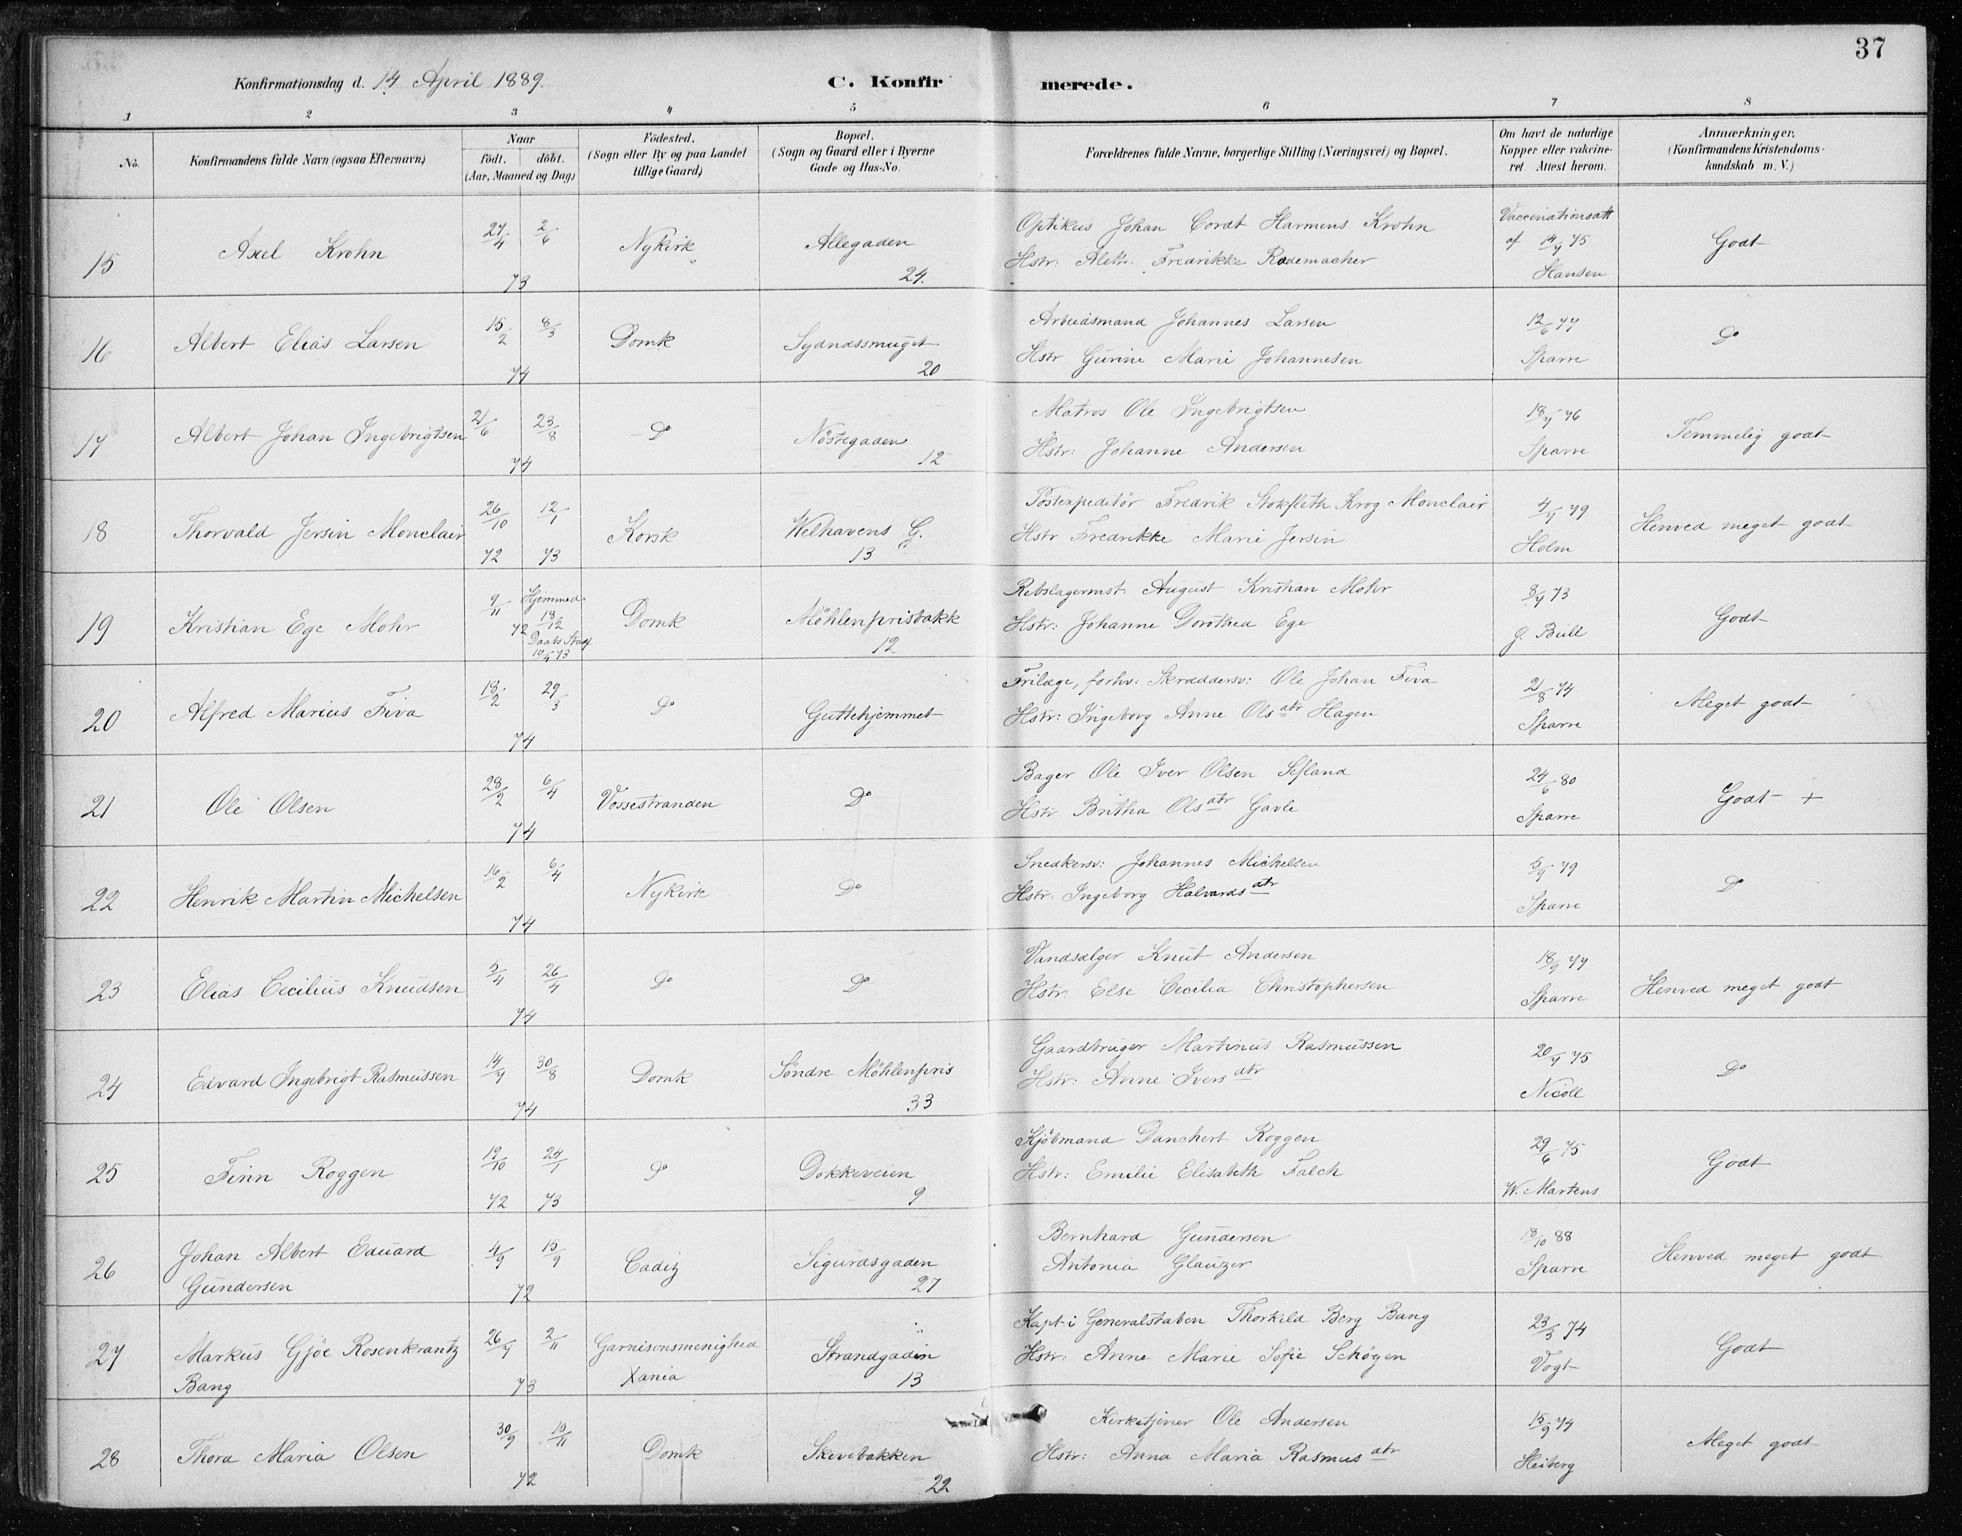 37
Konfirmationsdag d. 14 April 1889.
C. Konfirmerede.
1 2 3 4 5 6 7 8
No.
Konfirmandens fulde Navn (ogsaa Efternavn)
Naar
født. døbt.
(Aar, Maaned og Dag)
Födested.
(Sogn eller By og paa Landet
tillige Gaard)
Bopæl.
(Sogn og Gaard eller i Byerne
Gade og Hus-No.
Forældrenes fulde Navne, borgerlige Stilling (Næringsvei) og Bopæl.
Om havt de naturlige
Kopper eller vakcine-
ret. Attest herom.
Anmærkninger.
(Konfirmandens Kristendoms-
kundskab m. V.)
15 Axel Krohn 27/4 2/6 73 Nykirk Allegaden 24.
Optikus Johan Cordt Harmens Krohn
Hstr: Aleth. Fredrikke Rademacher
Vaccinationsatt
of 14/7 75
Hansen
Godt
16 Albert Elias Larsen 15/2 8/3 74 Domk Sydnæssmuget 20
Arbeidsmand Johannes Larsen
Hstr Gurine Marie Johannesen
12/6 77
Sparre
Do
17 Albert Johan Ingebrigtsen 21/6 23/8 74 Do Nöstegaden 12
Matros Ole Ingebrigtsen
Hstr: Johanne Andersen
18/7 76
Sparre
Temmelig godt
18 Thorvald Jersin Monclair 26/10 72 12/1 73 Korsk Welhavens G. 13
Postexpeditør Fredrik Stokfleth Krog Monclair
Hstr Fredrikke Marie Jersin
4/7 79
Holm
Henved meget godt
19 Kristian Ege Mohr 9/11 72 Hjemmed 18/12 Daabs Stadf 10/4 73 Domk Möhlenprisbakk 12
Rebslagermst. August Kristian Mohr
Hstr: Johanne Dorothea Ege
8/7 73
J. Bull
Godt
20 Alfred Marius Fiva 18/2 29/3 74 Do Guttehjemmet
Frilæge, forhv: Skræddersv: Ole Johan Fiva
Hstr: Ingeborg Anne Olsatr Hagen
21/8 74
Sparre
Meget godt
21 Ole Olsen 28/2 6/4 74 Vossestranden Do
Bager Ole Iver Olsen Sefland
Hstr Britha Olsatr Gavle
24/6 80
Sparre
Godt +
22 Henrik Martin Michelsen 16/2 6/4 74 Nykirk Do
Snedkersv: Johannes Michelsen
Hstr: Ingeborg Halvardsatr
5/9 79
Sparre
Do
23 Elias Cecilius Knudsen 5/4 26/4 74 Do Do
Vandsælger Knut Andersen
Hstr. Else Cecilia Christophersen
18/9 77
Sparre
Henved meget godt
24 Edvard Ingebrigt Rasmussen 14/7 30/8 74 Domk Söndre Möhlenpris 33
Gaardbruger Martinus Rasmussen
Hstr: Anne Iversatr
20/7 75
Nicoll
Do
25 Finn Roggen 19/10 72 24/1 73 Do Dokkeveien 9
Kjöbmand Danchert Roggen
Hstr: Emilie Elisabeth Falch
29/6 75
W. Martens
Godt
26 Johan Albert Eduard
Gundersen 4/9 15/9 72 Cadiz Sigurdsgaden 27
Bernhard Gundersen
Antonia Glauzer
18/10 88
Sparre
Henved meget godt
27 Markus Gjöe Rosenkrantz
Bang 26/9 2/11 73 Garnisonsmenighed
Xania Strandgaden 13
Kapt i Generalstaben Thorkild Berg Bang
Hstr: Anne Marie Sofie Schøgen
23/3 74
Vogt
Godt
28 Thora Maria Olsen 30/9 10/11 72 Domk Skevebakken 22
Kirketjener Ole Andersen
Hstr: Anna Maria Rasmusatr
15/9 74
Heiberg
Meget godt